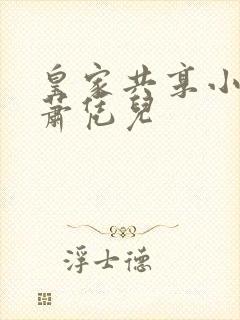 皇家共享小
蕭恁兒
浮士德